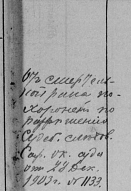 Отъ смертель-
ной раны по-
хороненъ по
разрешенiю
Судеб. следов.
Вар. ок. суда
от 28 Дек.
1903 г. № 1133.